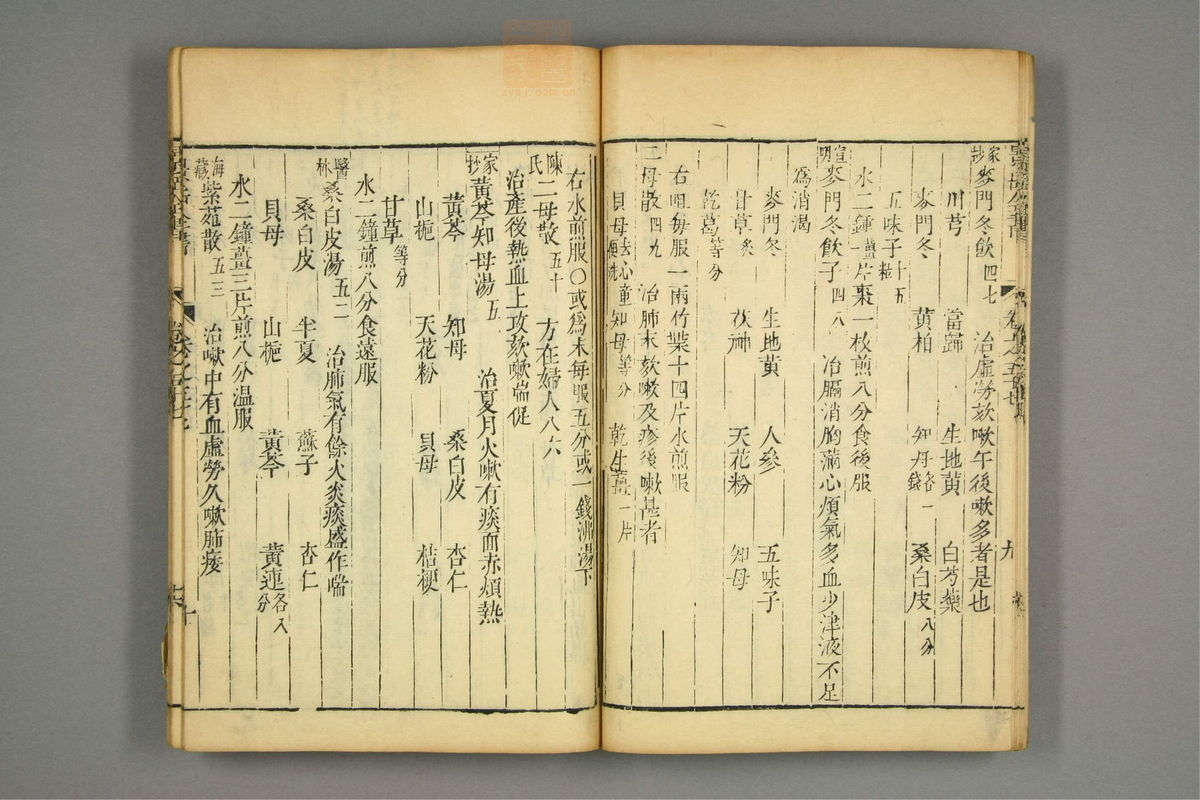 家抄麥門冬飲四七　治虛勞欬嗽午後嗽多者是也
川芎　當歸　生地黃　白芍藥
麥門冬　黃柏　知母各一錢　桑白皮八分
五味子十五粒
水二鐘薑一片棗一枚煎八分食後服
宣明麥門冬飲子四八　治膈消胸滿心煩氣多血少津液不足
爲消渴
麥門冬　生地黃　人參　五味子
甘草炙　茯神　天花粉　知母
乾葛等分
右咀每服一兩竹葉十四片水煎服
二母散四九　治肺末欬嗽及疹後嗽甚者
貝母去心童便洗　知母等分　乾生薑一片
右水煎服〇或爲末每服五分或一錢沸湯下
陳氏二母散五十　方在婦人八六
治產後熱血上攻欬嗽喘促
家抄黃芩知母湯五一　治夏月火嗽有痰面赤煩熱
黃芩　知母　桑白皮　杏仁
山梔　天花粉　貝母　桔梗
甘草等分
水二鐘煎八分食遠服
醫林桑白皮湯五二　治肺氣有餘火炎痰盛作喘
桑白皮　半夏　蘇子　杏仁
貝母　山梔　黃芩　黃連各八分
水二鐘薑三片煎八分溫服
海藏紫菀散五三　治嗽中有血虛勞久嗽肺痿